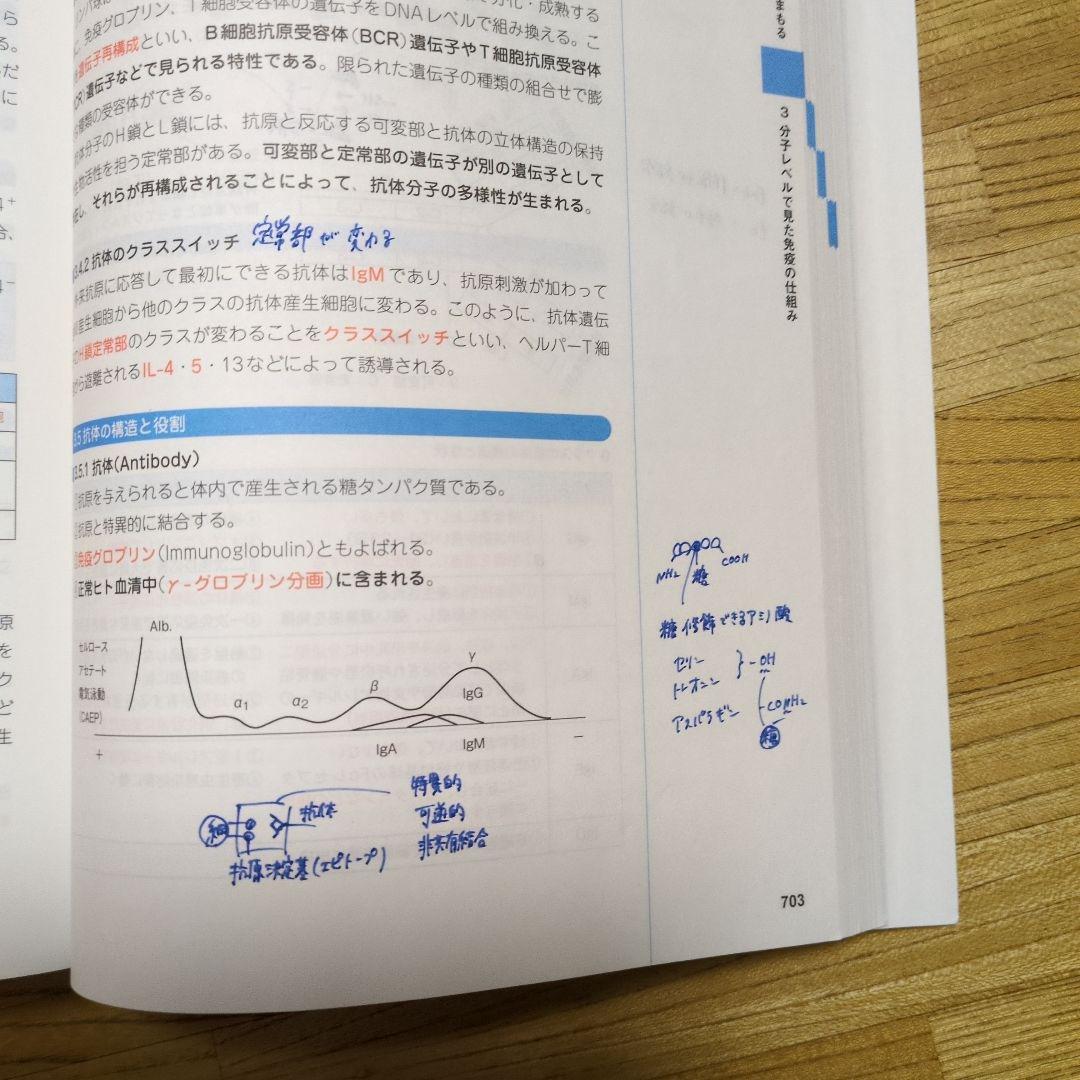 ら
る。
だ
に
4⁺
合、
4⁻
原
を
ク
ど
生
分化・成熟する
免疫グロブリン、T細胞受容体の遺伝子をDNAレベルで組み換える。こ
遺伝子再構成といい、B細胞抗原受容体(BCR)遺伝子やT細胞抗原受容体
CR)遺伝子などで見られる特性である。限られた遺伝子の種類の組合せで膨
種類の受容体ができる。
体分子のH鎖とL鎖には、抗原と反応する可変部と抗体の立体構造の保持
物活性を担う定常部がある。可変部と定常部の遺伝子が別の遺伝子として
し、それらが再構成されることによって、抗体分子の多様性が生まれる。
3.4.2 抗体のクラススイッチ 定常部が変わる
来抗原に応答して最初にできる抗体はIgMであり、抗原刺激が加わって
産生細胞から他のクラスの抗体産生細胞に変わる。このように、抗体遺伝
H鎖定常部のクラスが変わることをクラススイッチといい、ヘルパーT細
から遊離されるIL-4・5・13などによって誘導される。
3.5 抗体の構造と役割
3.5.1 抗体(Antibody)
抗原を与えられると体内で産生される糖タンパク質である。
抗原と特異的に結合する。
免疫グロブリン(Immunoglobulin)ともよばれる。
正常ヒト血清中(γ-グロブリン分画)に含まれる。
セルロース
アセテート
電気泳動
(CAEP)
Alb.
α₁
α₂
β
γ
IgG
IgA
IgM
+
−
細
抗体
抗原決定基(エピトープ)
特異的
可逆的
非共有結合
まもる
3 分子レベルで見た免疫の仕組み
NH₂
糖
COOH
糖修飾できるアミノ酸
セリン
トレオニン
-OH
アスパラギン
-CONH₂
糖
703